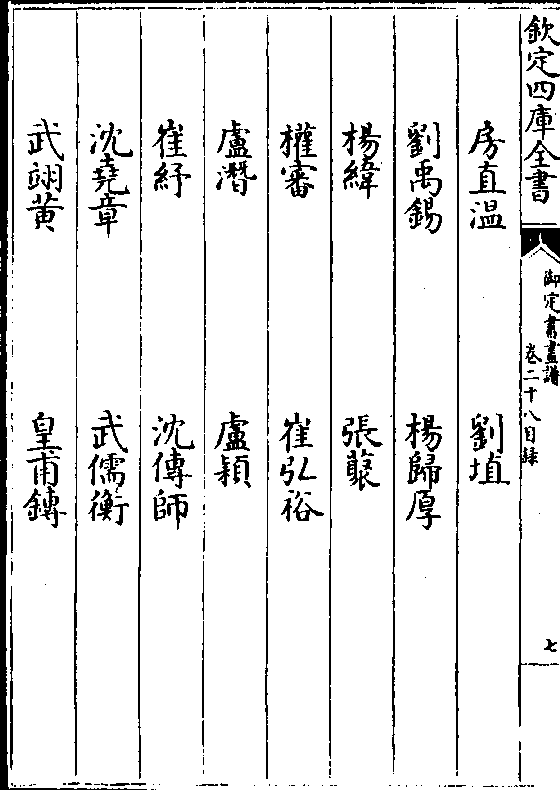 欽定四庫全書
御定書畫譜
卷二十八目錄
七
房直温 劉埴
劉禹錫 楊歸厚
楊緯
權審 崔弘裕
盧潛 盧穎
崔紓 沈傳師
沈堯章 武儒衡
武翊黄 皇甫鏄